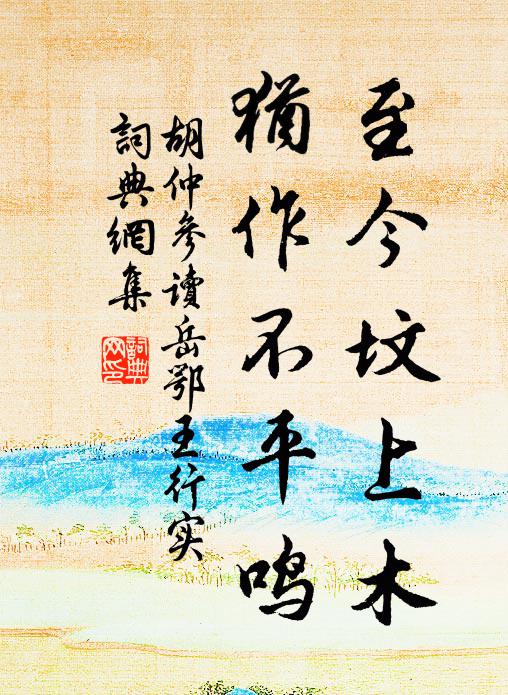 至今坟上木
猶作不平鸣
胡仲參读岳鄂王行实
詞典網集
詞典
网印